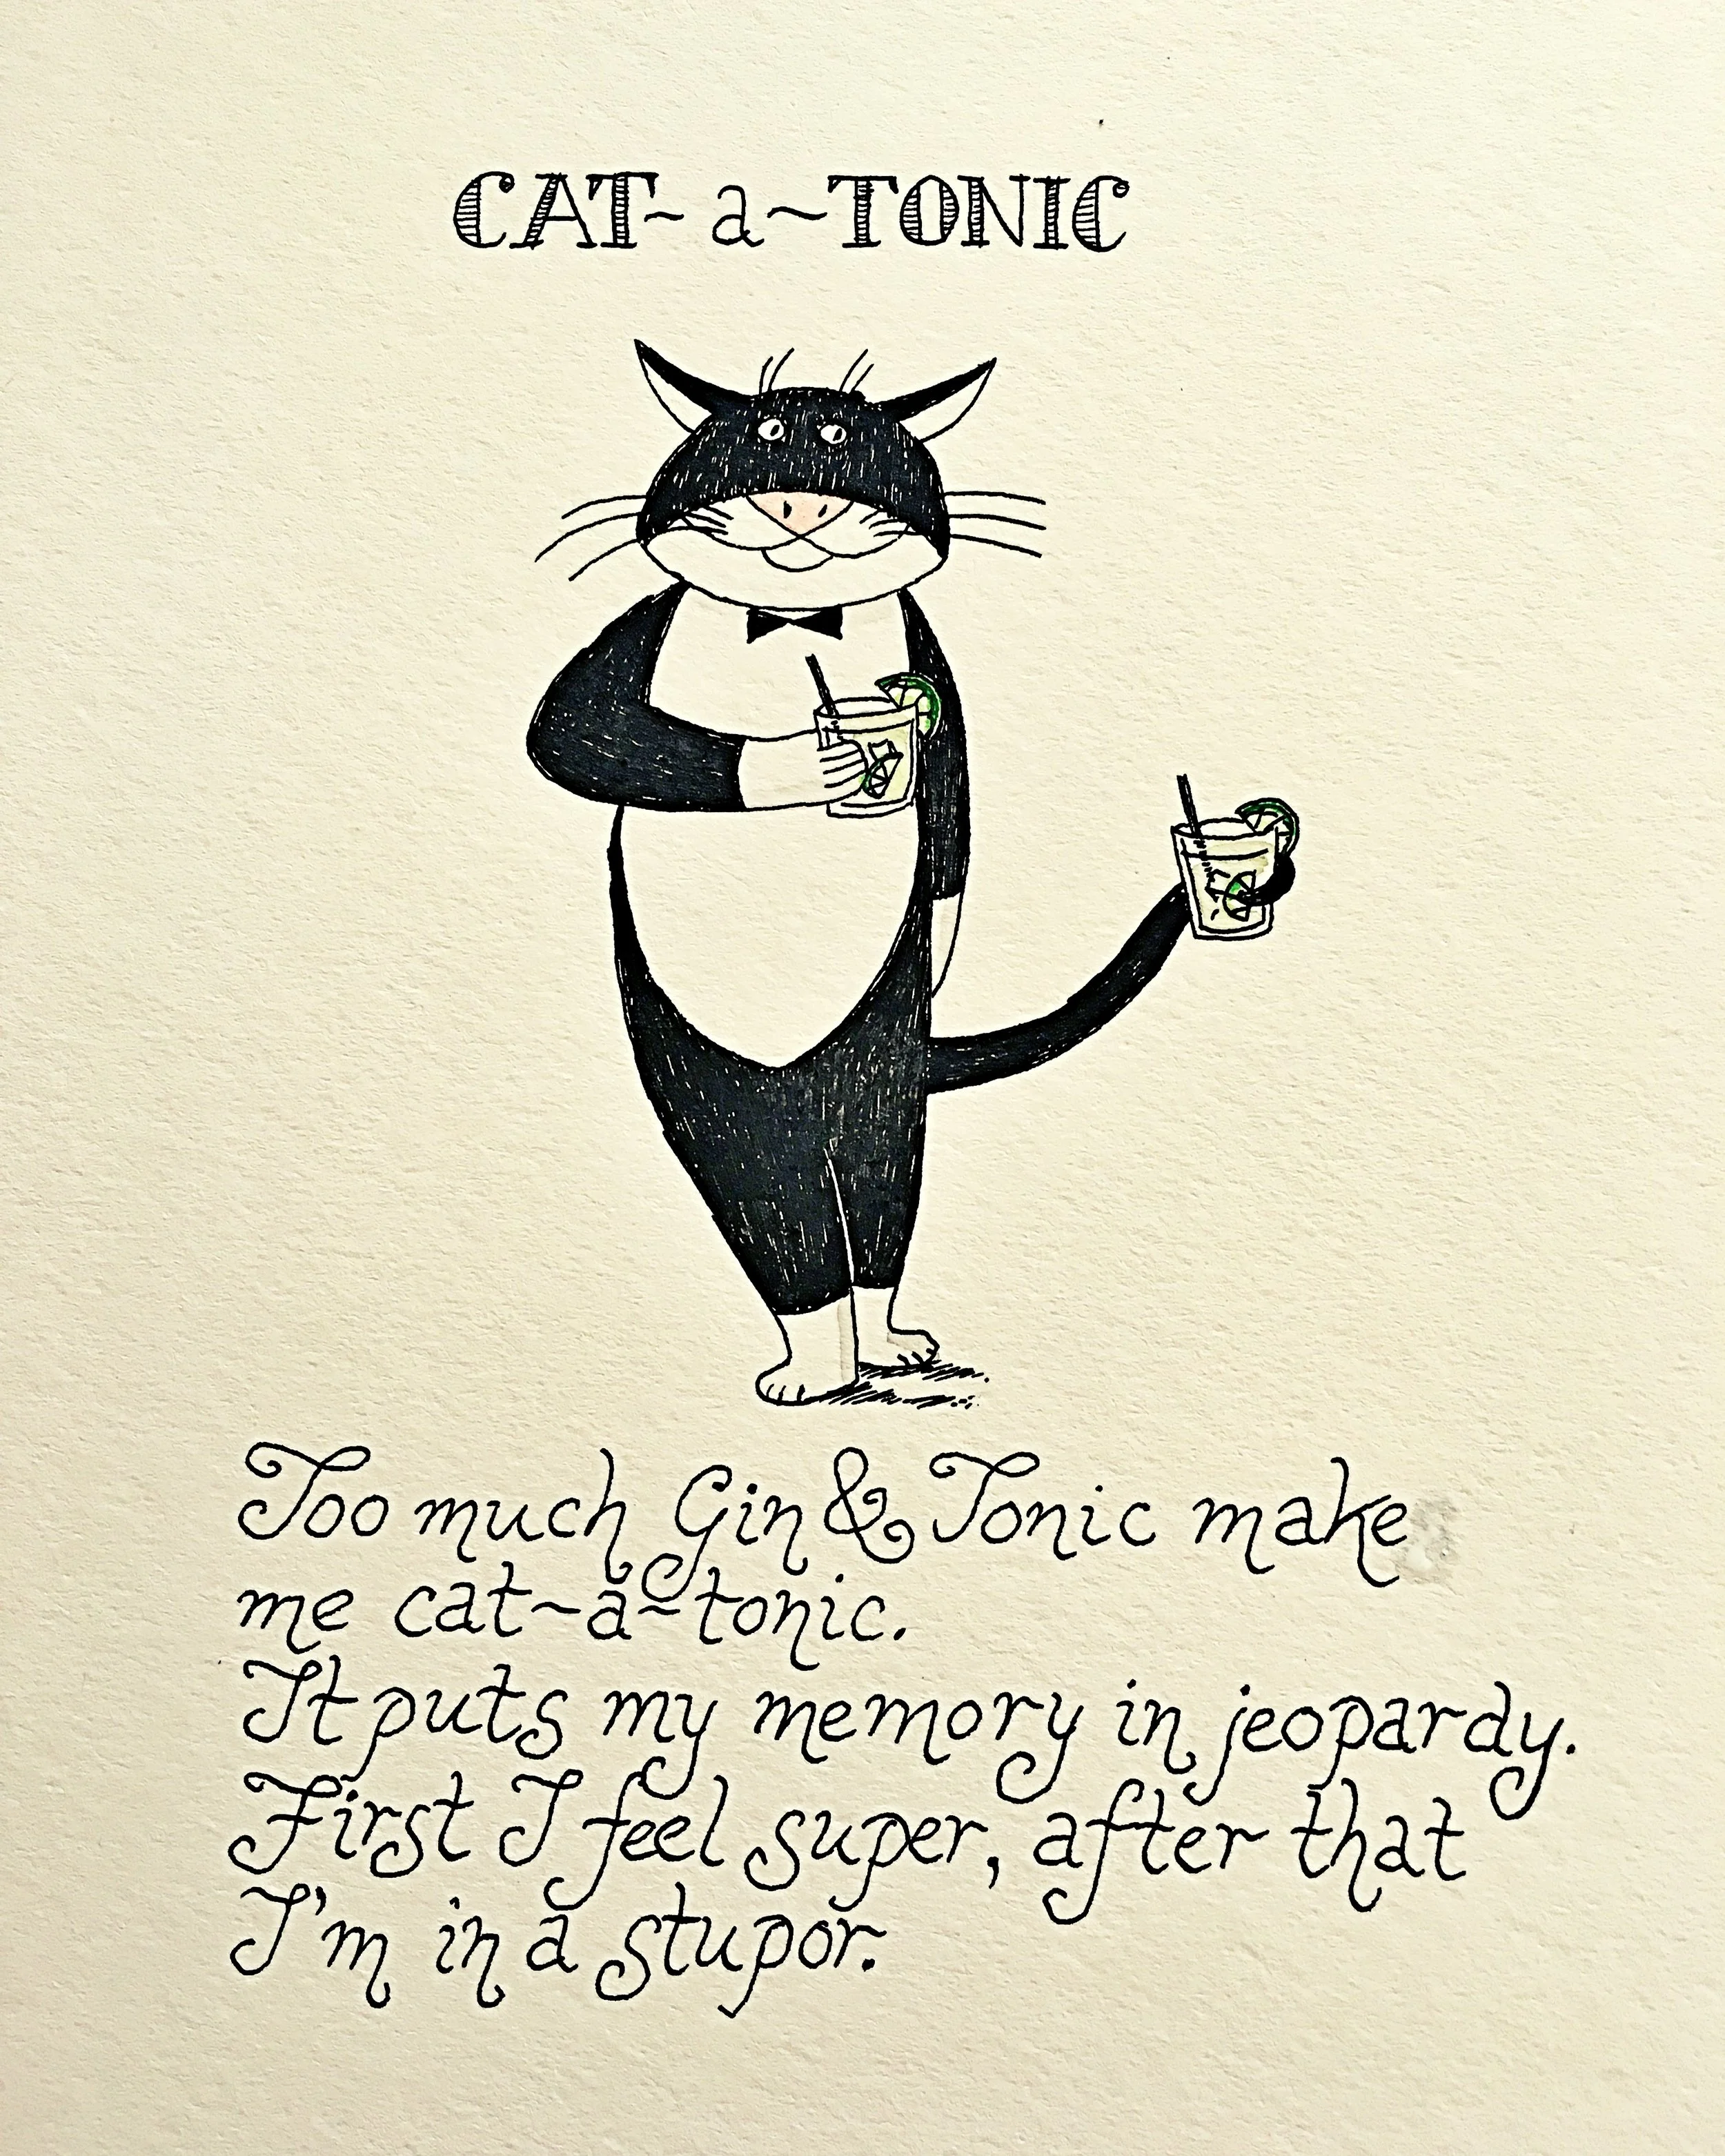 CAT~a~TONIC
Too much Gin & Tonic make
me cat~a~tonic.
It puts my memory in jeopardy.
First I feel super, after that
I'm in a stupor.